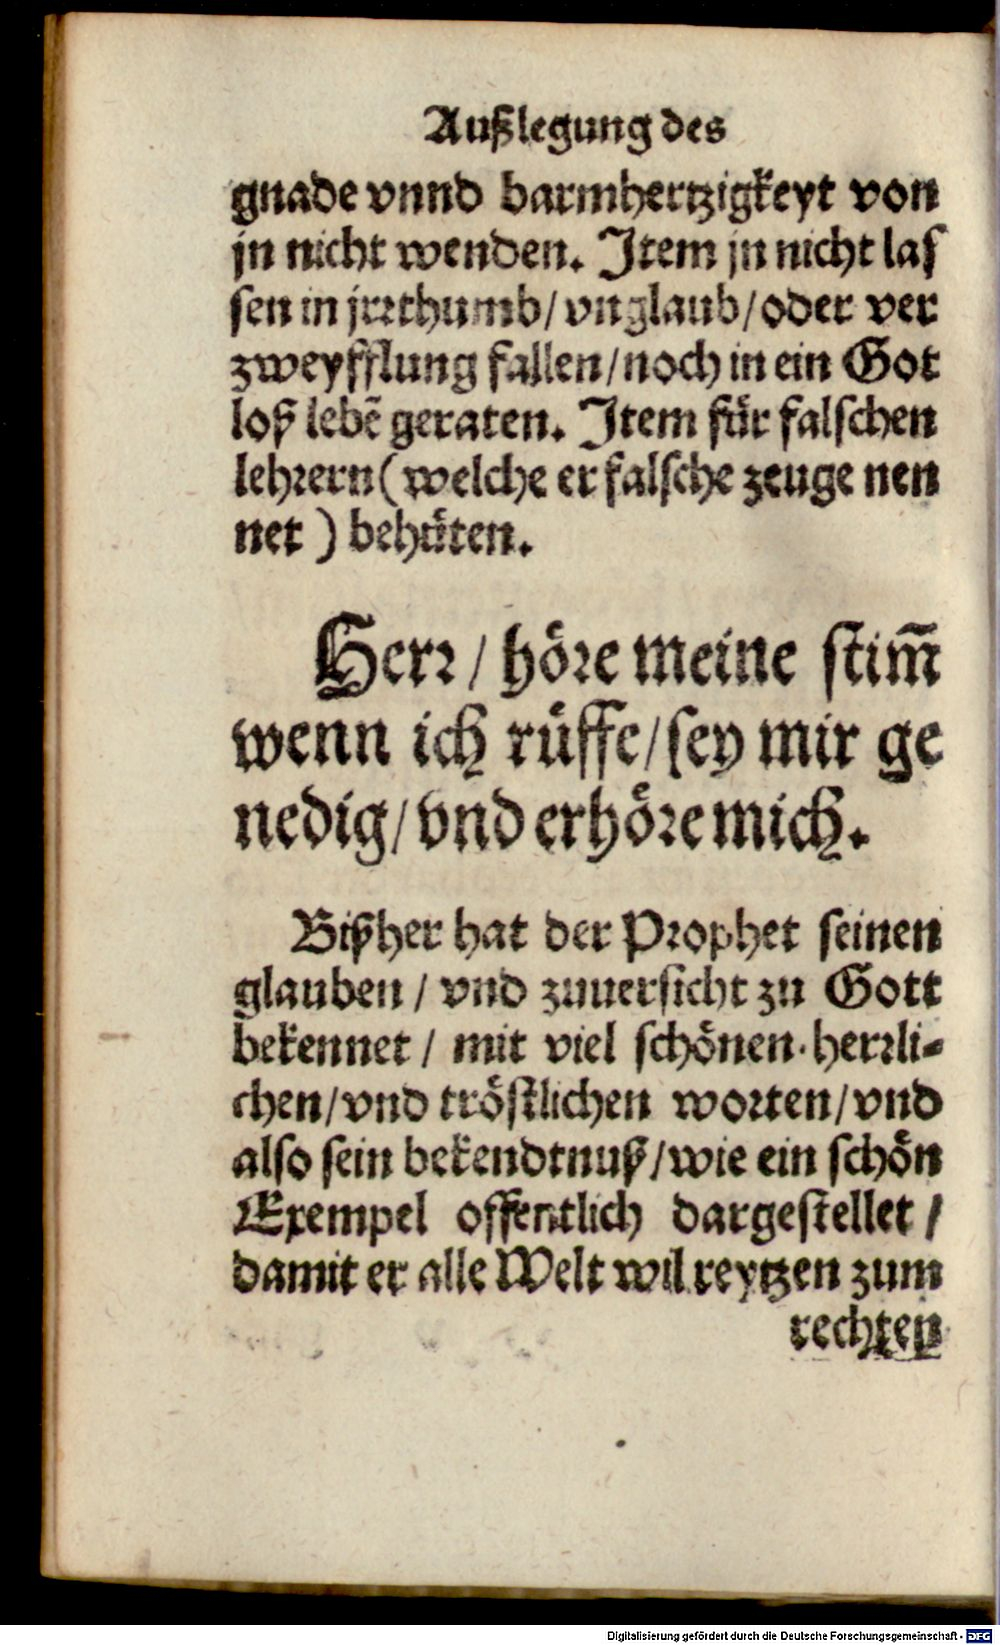 Außlegung des
gnade vnnd barmhertzigkeyt von
jn nicht wenden. Item jn nicht las
sen in jrrthumb/ vnglaub/ oder ver
zweyfflung fallen/ noch in ein Got
loß lebẽ geraten. Item für falschen
lehrern (welche er falsche zeuge nen
net) behüten.
Herr/ höre meine stim̃
wenn ich rüffe/ sey mir ge
nedig/ vnd erhöre mich.
Bißher hat der Prophet seinen
glauben/ vnd zuuersicht zu Gott
bekennet/ mit viel schönen. herrli-
chen/ vnd tröstlichen worten/ vnd
also sein bekendtnuß/ wie ein schön
Exempel offentlich dargestellet/
damit er alle Welt wil reytzen zum
rechten
Digitalisierung gefördert durch die Deutsche Forschungsgemeinschaft - DFG